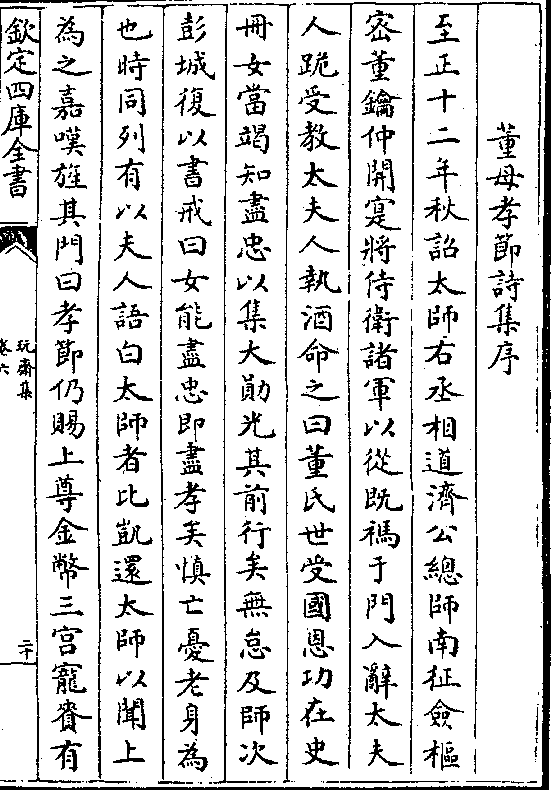 董母孝節詩集序
至正十二年秋詔太師右丞相道濟公總師南征僉樞
宻董鑰仲開寔將侍衛諸軍以從既禡于門入辭太夫
人跪受教太夫人執酒命之曰董氏世受國恩功在史
冊女當竭知盡忠以集大勛光其前行矣無怠及師次
彭城復以書戒曰女能盡忠即盡孝矣慎亡憂老身為
也時同列有以夫人語白太師者比凱還太師以聞上
為之嘉嘆旌其門曰孝節仍賜上尊金幣三宫寵賚有
欽定四庫全書
玩齋集
卷六
二十